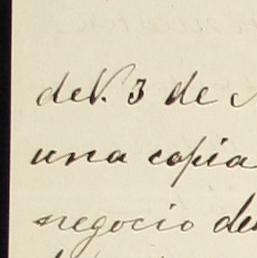 del 3 de
una copia
negocio de